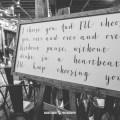 I choose you. And I'll choose
you over and over and over
without pause, without
doubt in a heartbeat
I'll keep choosing
you